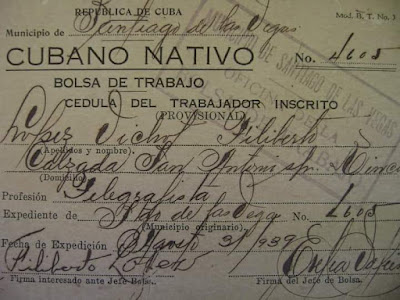 REPUBLICA DE CUBA
Mod. B. T. No. 3
Municipio de Santiago de las Vegas
CUBANO NATIVO No. 1605
BOLSA DE TRABAJO
CEDULA DEL TRABAJADOR INSCRITO
(PROVISIONAL)
López Filiberto
(Apellidos y nombre).
Calzada San Antonio
(Domicilio)
Profesión Telegrafista
Expediente de Stgo de las Vega No. 1605
(Municipio originario).
Fecha de Expedición Agosto 3/939
Filiberto López
Firma interesado ante Jefe Bolsa. Firma del Jefe de Bolsa.
MUNICIPIO DE SANTIAGO DE LAS VEGAS
OFICINA DE LA
BOLSA DE TRABAJO